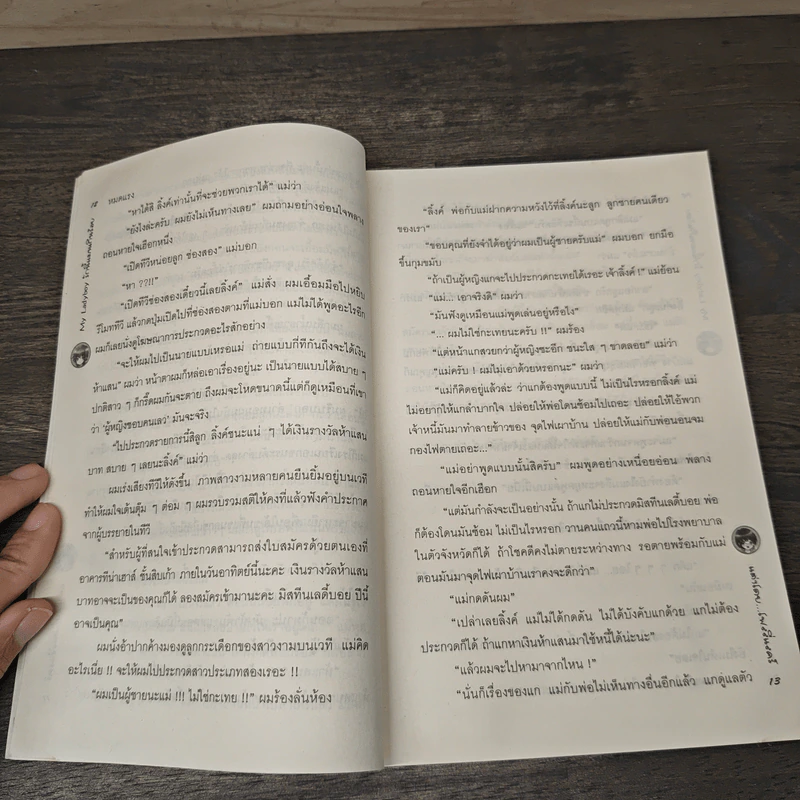 12 หมดแรง
My Ladyboy
"หาได้สิ ลิ้งค์เท่านั้นที่จะช่วยพวกเราได้" แม่ว่า
"ยังไงล่ะครับ ผมยังไม่เห็นทางเลย" ผมถามอย่างอ่อนใจพลาง
ถอนหายใจเฮือกหนึ่ง
"เปิดทีวีหน่อยลูก ช่องสอง" แม่บอก
"หา ??!!"
"เปิดทีวีช่องสองเดี๋ยวนี้เลยลิ้งค์" แม่สั่ง ผมเอื้อมมือไปหยิบ
รีโมททีวี แล้วกดปุ่มเปิดไปที่ช่องสองตามที่แม่บอก แม่ไม่ได้พูดอะไรอีก
ผมก็เลยนั่งดูโฆษณาการประกวดอะไรสักอย่าง
"จะให้ผมไปเป็นนายแบบเหรอแม่ ถ่ายแบบกี่ทีกันถึงจะได้เงิน
ห้าแสน" ผมว่า หน้าตาผมก็หล่อเอาเรื่องอยู่นะ เป็นนายแบบได้สบาย ๆ
ปกติสาว ๆ ก็กรี๊ดผมกันจะตาย ถึงผมจะโหดขนาดนี้แต่ก็ดูเหมือนที่เขา
ว่า 'ผู้หญิงชอบคนเลว' มันจะจริง
"ไปประกวดรายการนี้สิลูก ลิ้งค์ชนะแน่ ๆ ได้เงินรางวัลห้าแสน
บาท สบาย ๆ เลยนะลิ้งค์" แม่ว่า
ผมเร่งเสียงทีวีให้ดังขึ้น ภาพสาวงามหลายคนยืนยิ้มอยู่บนเวที
ทำให้ผมใจเต้นตุ้ม ๆ ต่อม ๆ ผมรวบรวมสติให้คงที่แล้วฟังคำประกาศ
จากผู้บรรยายในทีวี
"สำหรับผู้ที่สนใจเข้าประกวดสามารถส่งใบสมัครด้วยตนเองที่
อาคารทีน่าเฮาส์ ชั้นสิบเก้า ภายในวันอาทิตย์นี้นะคะ เงินรางวัลห้าแสน
บาทอาจจะเป็นของคุณก็ได้ ลองสมัครเข้ามานะคะ มิสทีนเลดี้บอย ปีนี้
อาจเป็นคุณ"
ผมนั่งอ้าปากค้างมองดูลูกกระเดือกของสาวงามบนเวที แม่คิด
อะไรเนี่ย !! จะให้ผมไปประกวดสาวประเภทสองเรอะ !!
"ผมเป็นผู้ชายนะแม่ !!! ไม่ใช่กะเทย !!" ผมร้องลั่นห้อง
"ลิ้งค์ พ่อกับแม่ฝากความหวังไว้ที่ลิ้งค์นะลูก ลูกชายคนเดียว
ของเรา"
"ขอบคุณที่ยังจำได้อยู่ว่าผมเป็นผู้ชายครับแม่" ผมบอก ยกมือ
ขึ้นกุมขมับ
"ถ้าเป็นผู้หญิงแกจะไปประกวดกะเทยได้เรอะ เจ้าลิ้งค์ !" แม่ย้อน
"แม่... เอาจริงดิ" ผมว่า
"มันฟังดูเหมือนแม่พูดเล่นอยู่หรือไง"
"... ผมไม่ใช่กะเทยนะครับ !!" ผมร้อง
"แต่หน้าแกสวยกว่าผู้หญิงซะอีก ชนะใส ๆ ขาดลอย" แม่ว่า
"แม่ครับ ! ผมไม่เอาด้วยหรอกนะ" ผมว่า
"แม่ก็คิดอยู่แล้วล่ะ ว่าแกต้องพูดแบบนี้ ไม่เป็นไรหรอกลิ้งค์ แม่
ไม่อยากให้แกลำบากใจ ปล่อยให้พ่อโดนซ้อมไปเถอะ ปล่อยให้ไอ้พวก
เจ้าหนี้มันมาทำลายข้าวของ จุดไฟเผาบ้าน ปล่อยให้แม่กับพ่อนอนจม
กองไฟตายเถอะ..."
"แม่อย่าพูดแบบนั้นสิครับ" ผมพูดอย่างเหนื่อยอ่อน พลาง
ถอนหายใจอีกเฮือก
"แต่มันกำลังจะเป็นอย่างนั้น ถ้าแกไม่ประกวดมิสทีนเลดี้บอย พ่อ
ก็ต้องโดนมันซ้อม ไม่เป็นไรหรอก วานคนแถวนี้หามพ่อไปโรงพยาบาล
ในตัวจังหวัดก็ได้ ถ้าโชคดีคงไม่ตายระหว่างทาง รอตายพร้อมกับแม่
ตอนมันมาจุดไฟเผาบ้านเราคงจะดีกว่า"
"แม่กดดันผม"
"เปล่าเลยลิ้งค์ แม่ไม่ได้กดดัน ไม่ได้บังคับแกด้วย แกไม่ต้อง
ประกวดก็ได้ ถ้าแกหาเงินห้าแสนมาใช้หนี้ได้น่ะนะ"
"แล้วผมจะไปหามาจากไหน !"
"นั่นก็เรื่องของแก แม่กับพ่อไม่เห็นทางอื่นอีกแล้ว แกดูแลตัว
13